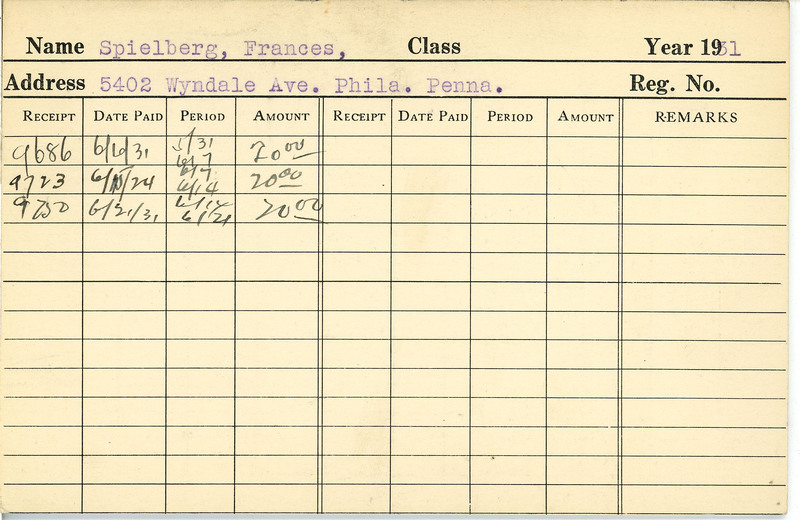 Name Spielberg, Frances, Class Year 1931
Address 5402 Wyndale Ave. Phila. Penna. Reg. No.
RECEIPT DATE PAID PERIOD AMOUNT RECEIPT DATE PAID PERIOD AMOUNT REMARKS
9686 6/6/31 5/31 20.00
6/7
9723 24 6/7 20.00
6/14
9750 6/21/31 6/14 20.00
6/21